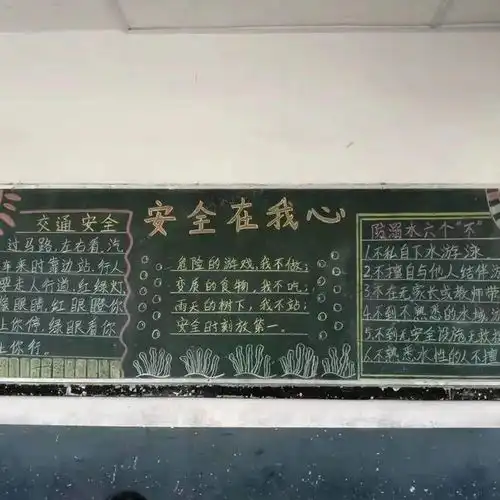 安全在我心
交通安全
过马路,左右看,汽
车来时靠边站.行人
要走人行道,红绿灯
眨眼睛,红眼瞪你
让你停,绿眼看你
让你行。
危险的游戏,我不做;
变质的食物,我不吃;
雨天的树下,我不站;
安全时刻放第一。
防溺水六个"不"
1.不私自下水游泳
2.不擅自与他人结伴
3.不在无家长或教师带
4.不到不熟悉的水域
5.不到无安全设施无救
6.不熟悉水性的人不擅